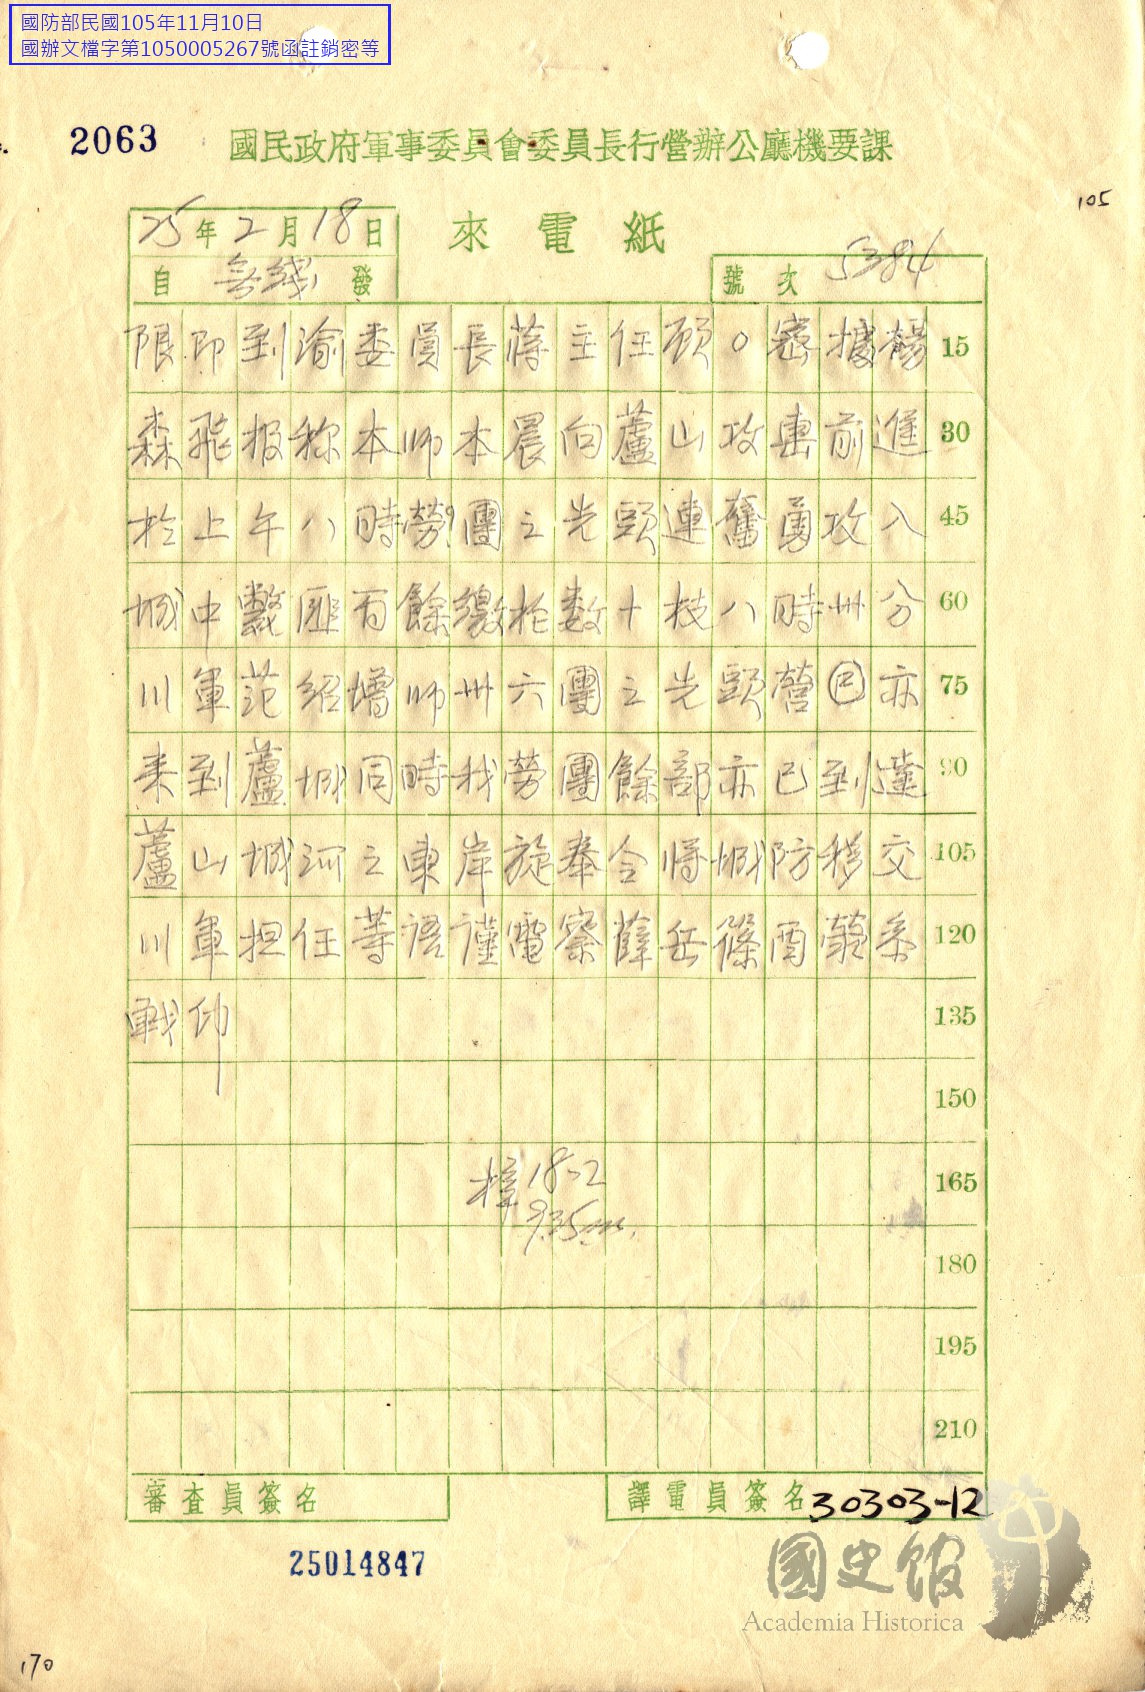 國防部民國105年11月10日
國辦文檔字第1050005267號函註銷密等
2063
國民政府軍事委員會委員長行營辦公廳機要課
105
25年2月18日
來電紙
自 無綫 發
號次 5384
限即到渝委員長蔣主任顧○密據楊 15
森飛报称本师本晨向蘆山攻擊前進 30
於上午八時勞團之先頭連奮勇攻入 45
城中斃匪百餘繳枪数十枝八時卅分 60
川軍范紹增师卅六團之先頭營㊁亦 75
来到蘆城同時我勞團餘部亦已到達 90
蘆山城河之東岸旋奉令将城防移交 105
川軍担任等语謹電察薛岳篠酉蓊系 120
戰仰 135
150
18-2 165
9.35
180
195
210
審查員簽名
譯電員簽名 30303-12
25014847
國史館
Academia Historica
170